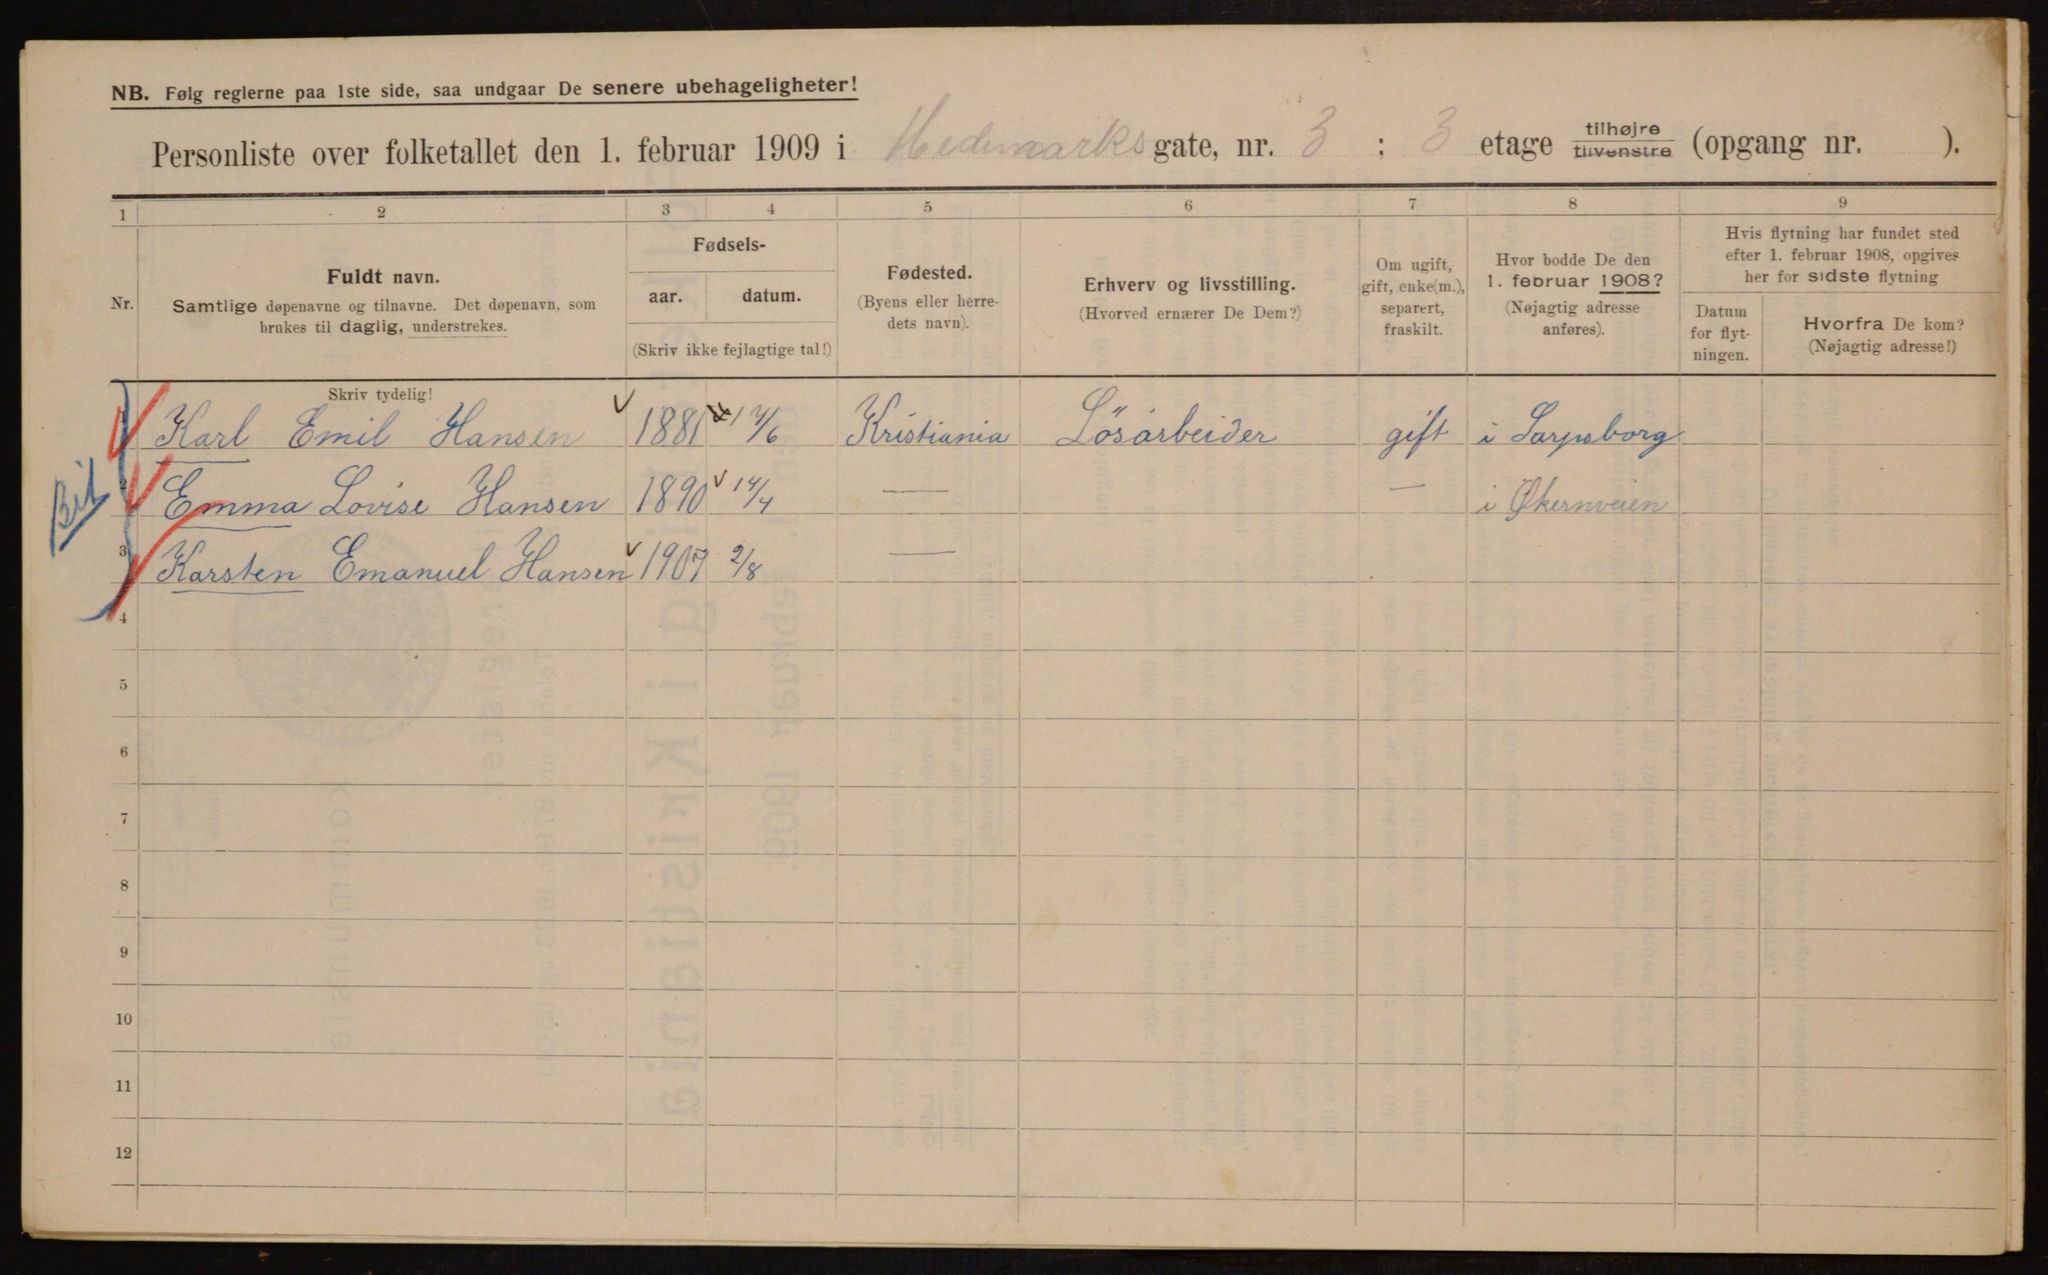 NB. Følg reglerne paa 1ste side, saa undgaar De senere ubehageligheter!
Personliste over folketallet den 1. februar 1909 i Hedemarks gate, nr. 3 ; 3 etage tilhøjre tilvenstre (opgang nr. ).
1 2 3 4 5 6 7 8 9
Nr.
Fuldt navn.
Samtlige døpenavne og tilnavne. Det døpenavn, som
brukes til daglig, understrekes.
Fødsels-
aar. datum.
(Skriv ikke fejlagtige tal!)
Fødested.
(Byens eller herre-
dets navn).
Erhverv og livsstilling.
(Hvorved ernærer De Dem?)
Om ugift,
gift, enke(m.),
separert,
fraskilt.
Hvor bodde De den
1. februar 1908?
(Nøjagtig adresse
anføres).
Hvis flytning har fundet sted
efter 1. februar 1908, opgives
her for sidste flytning
Datum
for flyt-
ningen.
Hvorfra De kom?
(Nøjagtig adresse!)
Skriv tydelig!
1 Karl Emil Hansen 1881 Kristiania Løsarbeider gift i Sarpsborg
2 Emma Lovise Hansen 1890 14/4 — — i Økernveien
3 Karsten Emanuel Hansen 1907 2/8 —
4
5
6
7
8
9
10
11
12